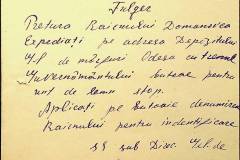 Fulger
Pretura Raionului Domanovca
Expediați pe adresa Depozitului
de mașini Odesa cu
Guvernământului butoae pentru
unt de lemn stop.
Aplicați pe butoaie denumirea
Raionului pentru indentificare
ss sub Direc.